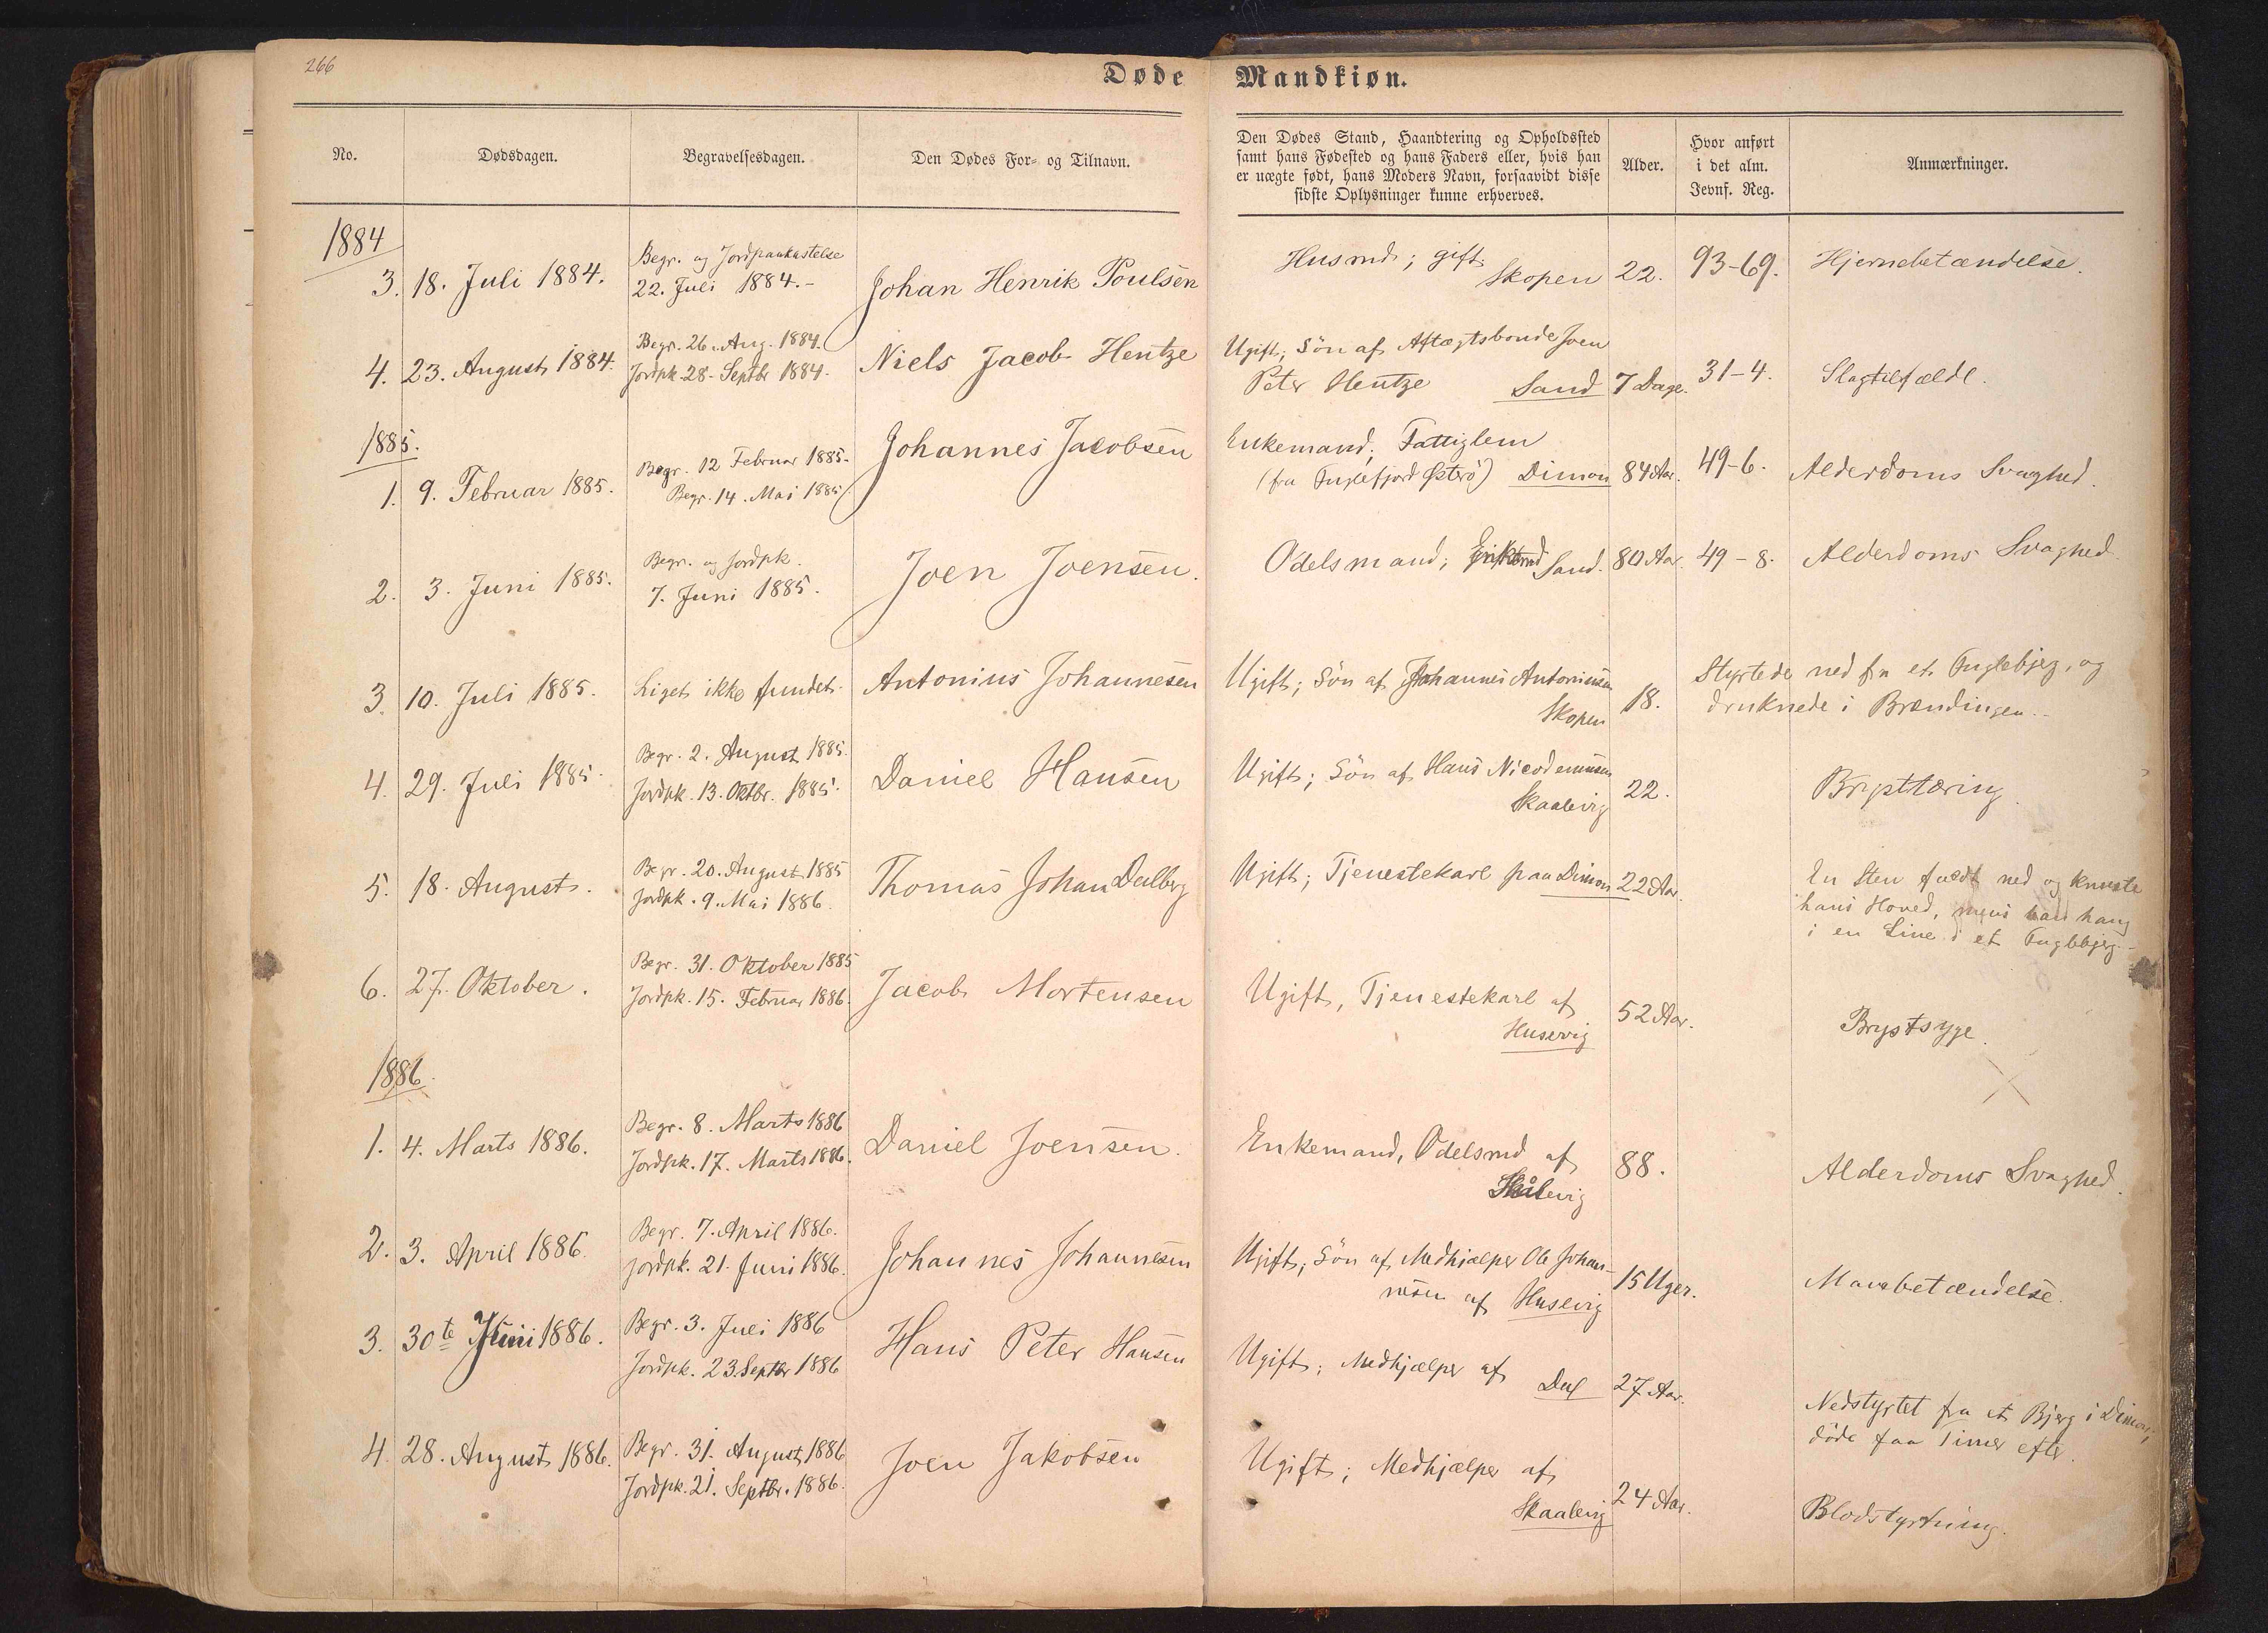 266
Døde Mandkiøn.
No. Dødsdagen. Begravelsesdagen. Den Dødes For- og Tilnavn.
Den Dødes Stand, Haandtering og Opholdssted
samt hans Fødested og hans Faders eller, hvis han
er uægte født, hans Moders Navn, forsaavidt disse
sidste Oplysninger kunne erhverves.
Alder.
Hvor anført
i det alm.
Jevnf. Reg.
Anmærkninger.
1884
3. 18. Juli 1884.
Begr. og Jordpaakastelse
22. Juli 1884.-
Johan Henrik Poulsen
Husmd; gift
Skopen 22. 93-69. Hjernebetændelse.
4. 23. August 1884.
Begr. 26. Aug. 1884.
Jordpk. 28. Septbr 1884.
Niels Jacob Hentze
Ugift; Sön af Aftægtsbonde Joen
Peter Hentze Sand 7 Dage. 31-4. Slagtilfælde.
1885.
1. 9. Februar 1885.
Begr. 12 Februar 1885.
Begr. 14. Mai 1885.
Johannes Jacobsen
Enkemand; Fattiglem
(fra Fuglefjord Østerö) Dimon 84 Aar. 49-6. Alderdoms Svaghed.
2. 3. Juni 1885.
Begr. og Jordpk.
7. Juni 1885.
Joen Joensen.
Odelsmand; Sand. 80 Aar. 49-8. Alderdoms Svaghed
3. 10. Juli 1885. Liget ikke fundet. Antonius Johannesen
Ugift; Sön af Johannes Antoniusen
Skopen 18.
Styrtede ned fra et Fuglebjerg, og
druknede i Brændingen.-
4. 29. Juli 1885.
Begr. 2. August 1885.
Jordpk. 13. Oktbr. 1885.
Daniel Hansen
Ugift; Sön af Hans Nicodemusen
Skaalevig 22. Brysttæring.
5. 18. August.
Begr. 20. August 1885
Jordpk. 9. Mai 1886.
Thomas Johan Dalberg
Ugift; Tjenestekarl paa Dimon 22 Aar.
En Sten faldt ned og knuste
hans Hoved, mens han hang
i en Line i et Fuglebjerg.-
6. 27. Oktober.
Begr. 31. Oktober 1885
Jordpk. 15. Februar 1886.
Jacob Mortensen
Ugift, Tjenestekarl af
Husevig 52 Aar. Brystsyge.
1886.
1. 4. Marts 1886.
Begr. 8. Marts 1886
Jordpk. 17. Marts 1886.
Daniel Joensen.
Enkemand, Odelsmd af
Skålevig 88. Alderdoms Svaghed.
2. 3. April 1886.
Begr. 7. April 1886.
Jordpk. 21. Juni 1886.
Johannes Johannesen
Ugift, Sön af Medhjælper Ole Johan-
nesen af Husevig 15 Uger. Mavebetændelse.
3. 30te Juni 1886.
Begr. 3. Juli 1886
Jordpk. 23. Septbr 1886
Hans Peter Hansen
Ugift; Medhjælper af
Dal 27 Aar.
Nedstyrtet fra et Bjerg i Dimon,
döde faa Timer efter.
4. 28. August 1886.
Begr. 31. August 1886
Jordpk. 21. Septbr. 1886.
Joen Jakobsen
Ugift; Medhjælper af
Skaalevig 24 Aar. Blodstyrtning.